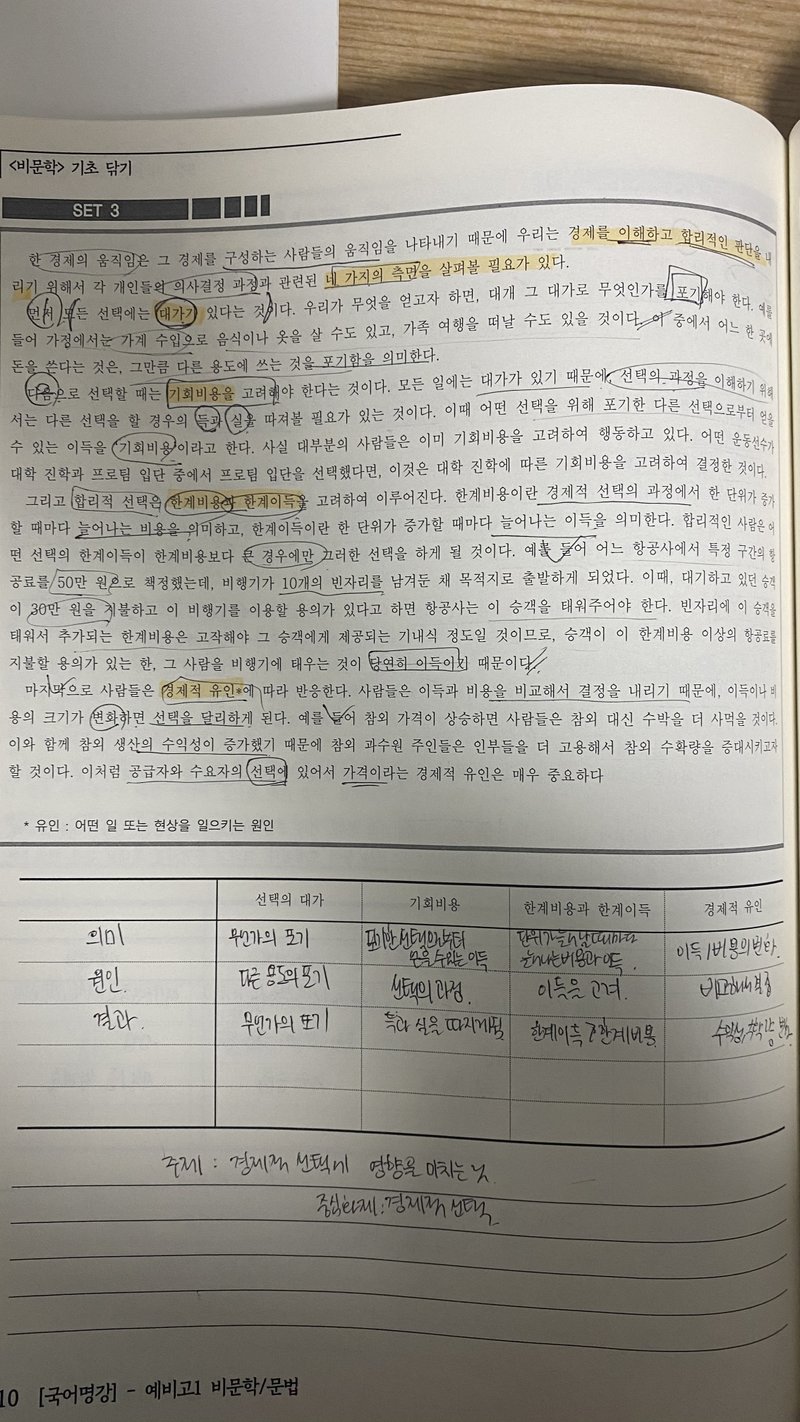 <비문학> 기초 닦기
SET 3
한 경제의 움직임은 그 경제를 구성하는 사람들의 움직임을 나타내기 때문에 우리는 경제를 이해하고 합리적인 판단을 내
리기 위해서 각 개인들의 의사결정 과정과 관련된 네 가지의 측면을 살펴볼 필요가 있다.
먼저 모든 선택에는 대가가 있다는 것이다. 우리가 무엇을 얻고자 하면, 대개 그 대가로 무엇인가를 포기해야 한다. 예를
들어 가정에서는 가계 수입으로 음식이나 옷을 살 수도 있고, 가족 여행을 떠날 수도 있을 것이다. 이 중에서 어느 한 곳에
돈을 쓴다는 것은, 그만큼 다른 용도에 쓰는 것을 포기함을 의미한다.
다음으로 선택할 때는 기회비용을 고려해야 한다는 것이다. 모든 일에는 대가가 있기 때문에, 선택의 과정을 이해하기 위해
서는 다른 선택을 할 경우의 득과 실을 따져볼 필요가 있는 것이다. 이때 어떤 선택을 위해 포기한 다른 선택으로부터 얻을
수 있는 이득을 기회비용이라고 한다. 사실 대부분의 사람들은 이미 기회비용을 고려하여 행동하고 있다. 어떤 운동선수가
대학 진학과 프로팀 입단 중에서 프로팀 입단을 선택했다면, 이것은 대학 진학에 따른 기회비용을 고려하여 결정한 것이다.
그리고 합리적 선택은 한계비용과 한계이득을 고려하여 이루어진다. 한계비용이란 경제적 선택의 과정에서 한 단위가 증가
할 때마다 늘어나는 비용을 의미하고, 한계이득이란 한 단위가 증가할 때마다 늘어나는 이득을 의미한다. 합리적인 사람은 어
떤 선택의 한계이득이 한계비용보다 큰 경우에만 그러한 선택을 하게 될 것이다. 예를 들어 어느 항공사에서 특정 구간의 항
공료를 50만 원으로 책정했는데, 비행기가 10개의 빈자리를 남겨둔 채 목적지로 출발하게 되었다. 이때, 대기하고 있던 승객
이 30만 원을 지불하고 이 비행기를 이용할 용의가 있다고 하면 항공사는 이 승객을 태워주어야 한다. 빈자리에 이 승객을
태워서 추가되는 한계비용은 고작해야 그 승객에게 제공되는 기내식 정도일 것이므로, 승객이 이 한계비용 이상의 항공료를
지불할 용의가 있는 한, 그 사람을 비행기에 태우는 것이 당연히 이득이기 때문이다.
마지막으로 사람들은 경제적 유인*에 따라 반응한다. 사람들은 이득과 비용을 비교해서 결정을 내리기 때문에, 이득이나 비
용의 크기가 변화하면 선택을 달리하게 된다. 예를 들어 참외 가격이 상승하면 사람들은 참외 대신 수박을 더 사먹을 것이다.
이와 함께 참외 생산의 수익성이 증가했기 때문에 참외 과수원 주인들은 인부들을 더 고용해서 참외 수확량을 증대시키고자
할 것이다. 이처럼 공급자와 수요자의 선택에 있어서 가격이라는 경제적 유인은 매우 중요하다
* 유인 : 어떤 일 또는 현상을 일으키는 원인
선택의 대가 기회비용 한계비용과 한계이득 경제적 유인
의미 무언가의 포기 포기한 선택으로부터 얻을 수 있는 이득 단위가 늘어날 때마다 늘어나는 비용과 이득. 이득/비용의 변화.
원인. 다른 용도의 포기 선택의 과정. 이득을 고려. 비교해서 결정
결과. 무언가의 포기 득과 실을 따지게 됨 한계이득 > 한계비용. 수익성, 수확량
주제 : 경제적 선택에 영향을 미치는 것.
중심화제 : 경제적 선택
10 [국어명강] - 예비고1 비문학/문법